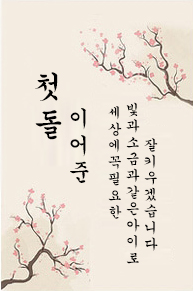 첫돌
이어준
세상에꼭필요한
빛과소금과같은아이로
잘키우겠습니다